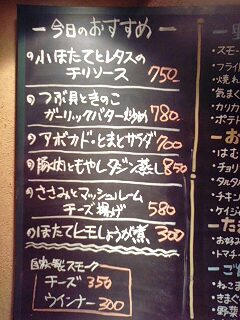 今日のおすすめ
小ほたてとレタスの
チリソース 750
つぶ貝ときのこ
ガーリックバター炒め 780
アボカド・とまとサラダ 700
豚肉ともやしタジン蒸し 850
ささみとマッシュルーム
チーズ揚げ 580
小ほたてレモンしょうが煮 300
自家製スモーク
チーズ 350
ウインナー 300
スモー
フライド
焼れ
気まぐ
カリカ
ポテト
はむ
チョリ
タルタル
チキン
ケイジ
たま
お好み
トマチー
ねこま
きまぐ
野菜